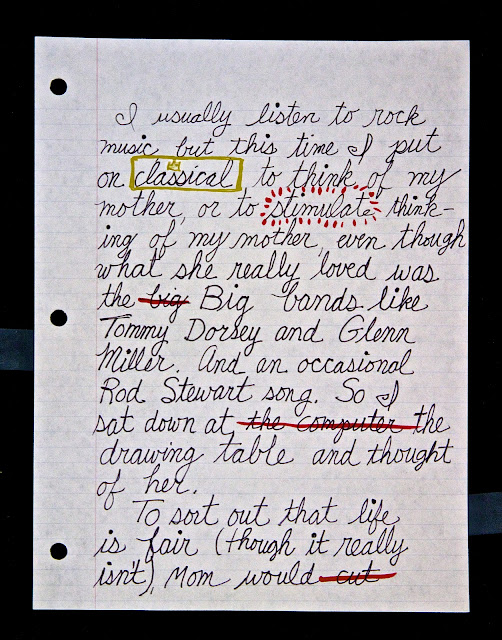 I usually listen to rock
music, but this time I put
on classical to think of my
mother, or to stimulate think-
ing of my mother, even though
what she really loved was
the big Big bands like
Tommy Dorsey and Glenn
Miller. And an occasional
Rod Stewart song. So I
sat down at the computer the
drawing table and thought
of her.
To sort out that life
is fair (though it really
isn't), Mom would cut